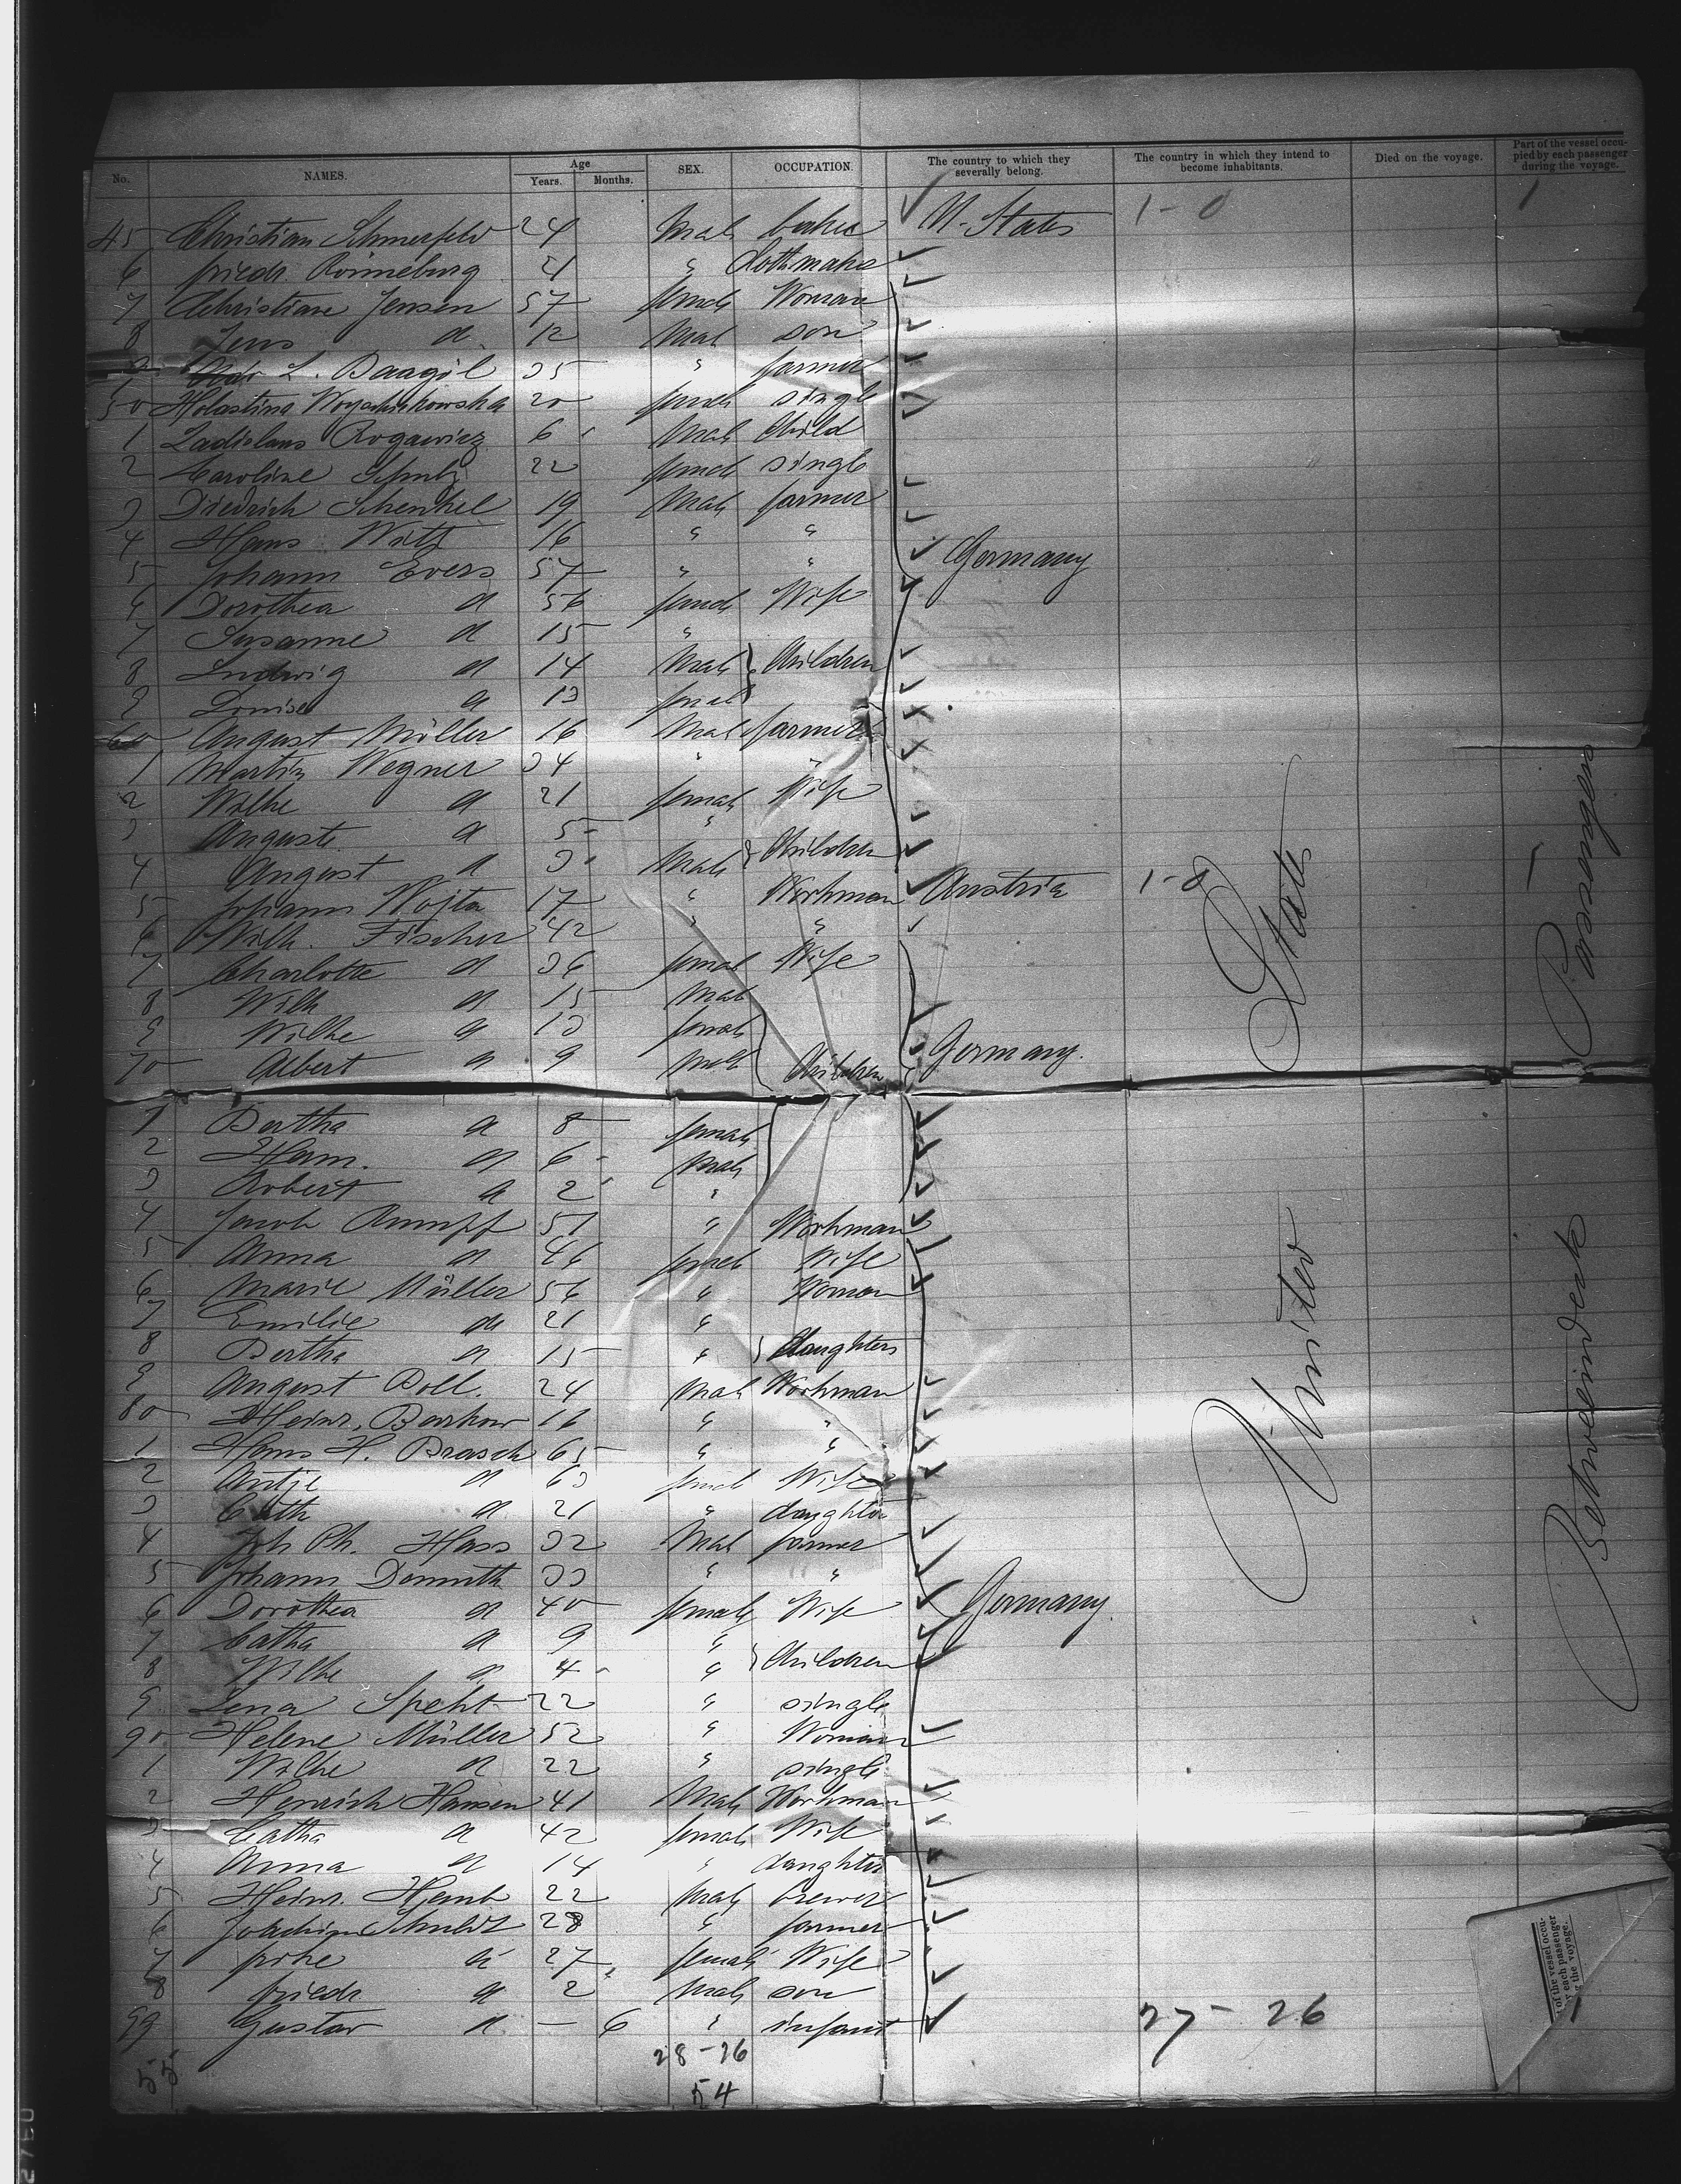 No. NAMES. Age Years. Months. SEX. OCCUPATION. The country to which they severally belong. The country in which they intend to become inhabitants. Died on the voyage. Part of the vessel occupied by each passenger during the voyage.
45 Christian 24 Male baker U. States 1-0 1
6 Friedr. Rönneburg 21 "
7 Christiane Jensen 57 female Woman
8 Jens d 12 Male son
9 L. Baagöl 35 " farmer
50 20 female single
1 Ladislaus Rogawicz 6 Male Child
2 Caroline 22 female single
3 Diedrich Schenkel 19 Male farmer
4 Hans Witt 16 " "
5 Johann Evers 57 " " Germany
6 Dorothea d 56 female Wife
7 Susanne d 15 "
8 Ludwig d 14 Male Children
9 Louise d 13 female
60 August Müller 16 Male farmer
1 Martin Wegner 34 " "
2 Wilhe d 21 female Wife
3 Auguste d 5 "
4 August d 3 Male Children
5 Johann Wojta 17 " Workman Austria 1-0
6 Wilh. Fischer 42 " "
7 Charlotte d 36 female Wife
8 Wilh d 15 Male
9 Wilhe d 13 female
70 Albert d 9 Male Children Germany.
1 Bertha d 8 female
2 Herm. d 6 Male
3 Robert d 2 "
4 Jacob Rumpf 51 " Workman
5 Anna d 46 female Wife
6 Marie Müller 56 " Woman
7 Emilie d 21 "
8 Bertha d 15 " daughters
9 August Doll. 24 Male Workman
80 Heinr. Barkow 16 " "
1 Hans H. Brasch 65 " "
2 Antje d 63 female Wife
3 Cath d 21 " daughter
4 Joh Ph. Hass 32 Male farmer
5 Johann Demuth 33 " "
6 Dorothea d 40 female Wife Germany.
7 Catha d 9 "
8 Wilhe d 4 " Children
9 Lena Speht 22 " single
90 Helene Müller 52 " Woman
1 Wilhe d 22 " single
2 Henrich Hansen 41 Male Workman
3 Catha d 42 female Wife
4 Anna d 14 " daughter
5 Heinr. 22 Male brewer
6 Joachim Schuldt 28 " farmer
7 d 27 female Wife
8 Friedr d 2 Male son
99 Gustav d — 6 " infant
United States
Betweendeck Passengers
27-26
28-26
55
54
of the vessel occu-
by each passenger
the voyage.